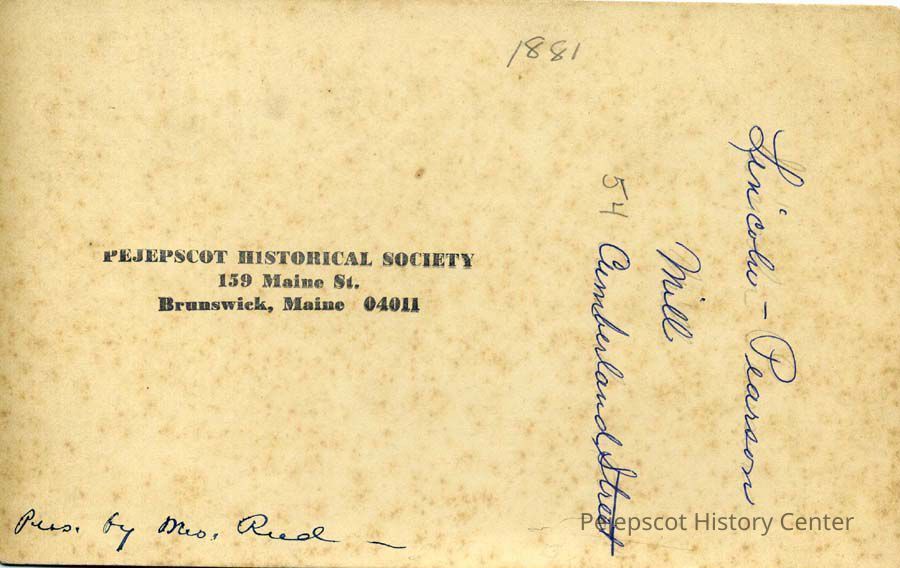 1881
Lincoln - Pearson
Mill
54 Cumberland Street
PEJEPSCOT HISTORICAL SOCIETY
159 Maine St.
Brunswick, Maine 04011
Pres. by Mrs. Reed —
Pejepscot History Center